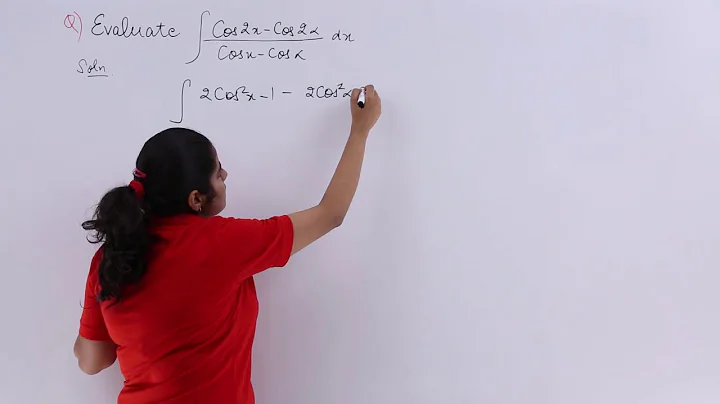 Q) Evaluate ∫ Cos2x - Cos2α / Cosx - Cosα dx
Soln.
∫ 2Cos²x - 1 - 2Cos²α